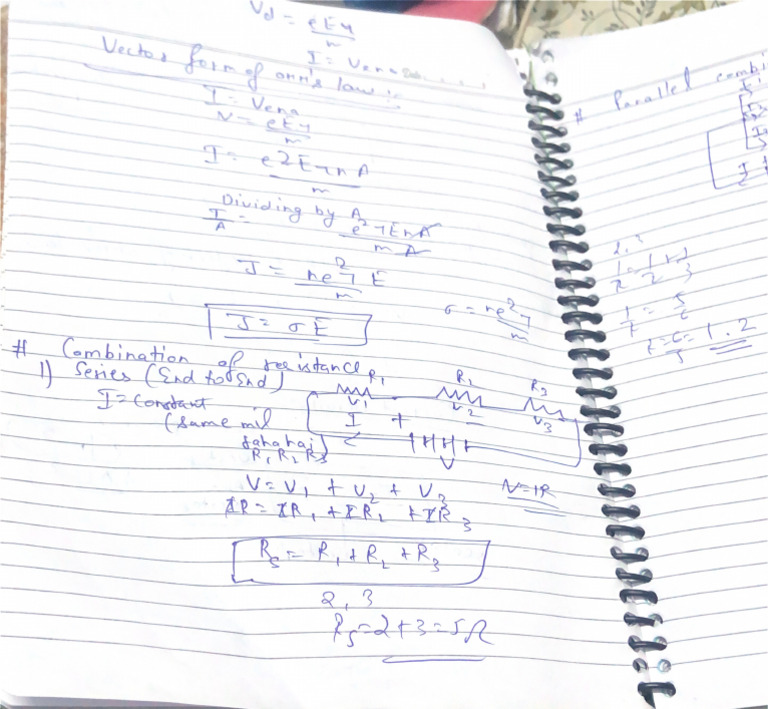 Vd = eEτ/m
I = Vena
Vector form of ohm's law :-
I = Vena
V = eEτ/m
I = e2EτnA/m
Dividing by A
I/A = e²τEnA/mA
J = ne²τ/m E
J = σE
σ = ne²τ/m
# Combination of resistance
1) Series (End to End)
I = Constant
(same mil
raha hai)
R1, R2 R3
R1 R2 R3
V1 V2 V3
I +
V
V = V1 + V2 + V3
V=IR
IR = IR1 + IR2 + IR3
Rs = R1 + R2 + R3
2, 3
Rs = 2+3 = 5Ω
# Parallel combi
2, 3
1/r = 1/2 + 1/3
1/r = 5/6
r = 6/5 = 1.2